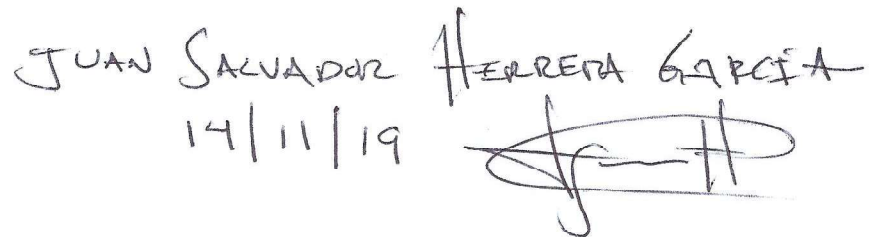 JUAN SALVADOR HERRERA GARCÍA
14/11/19